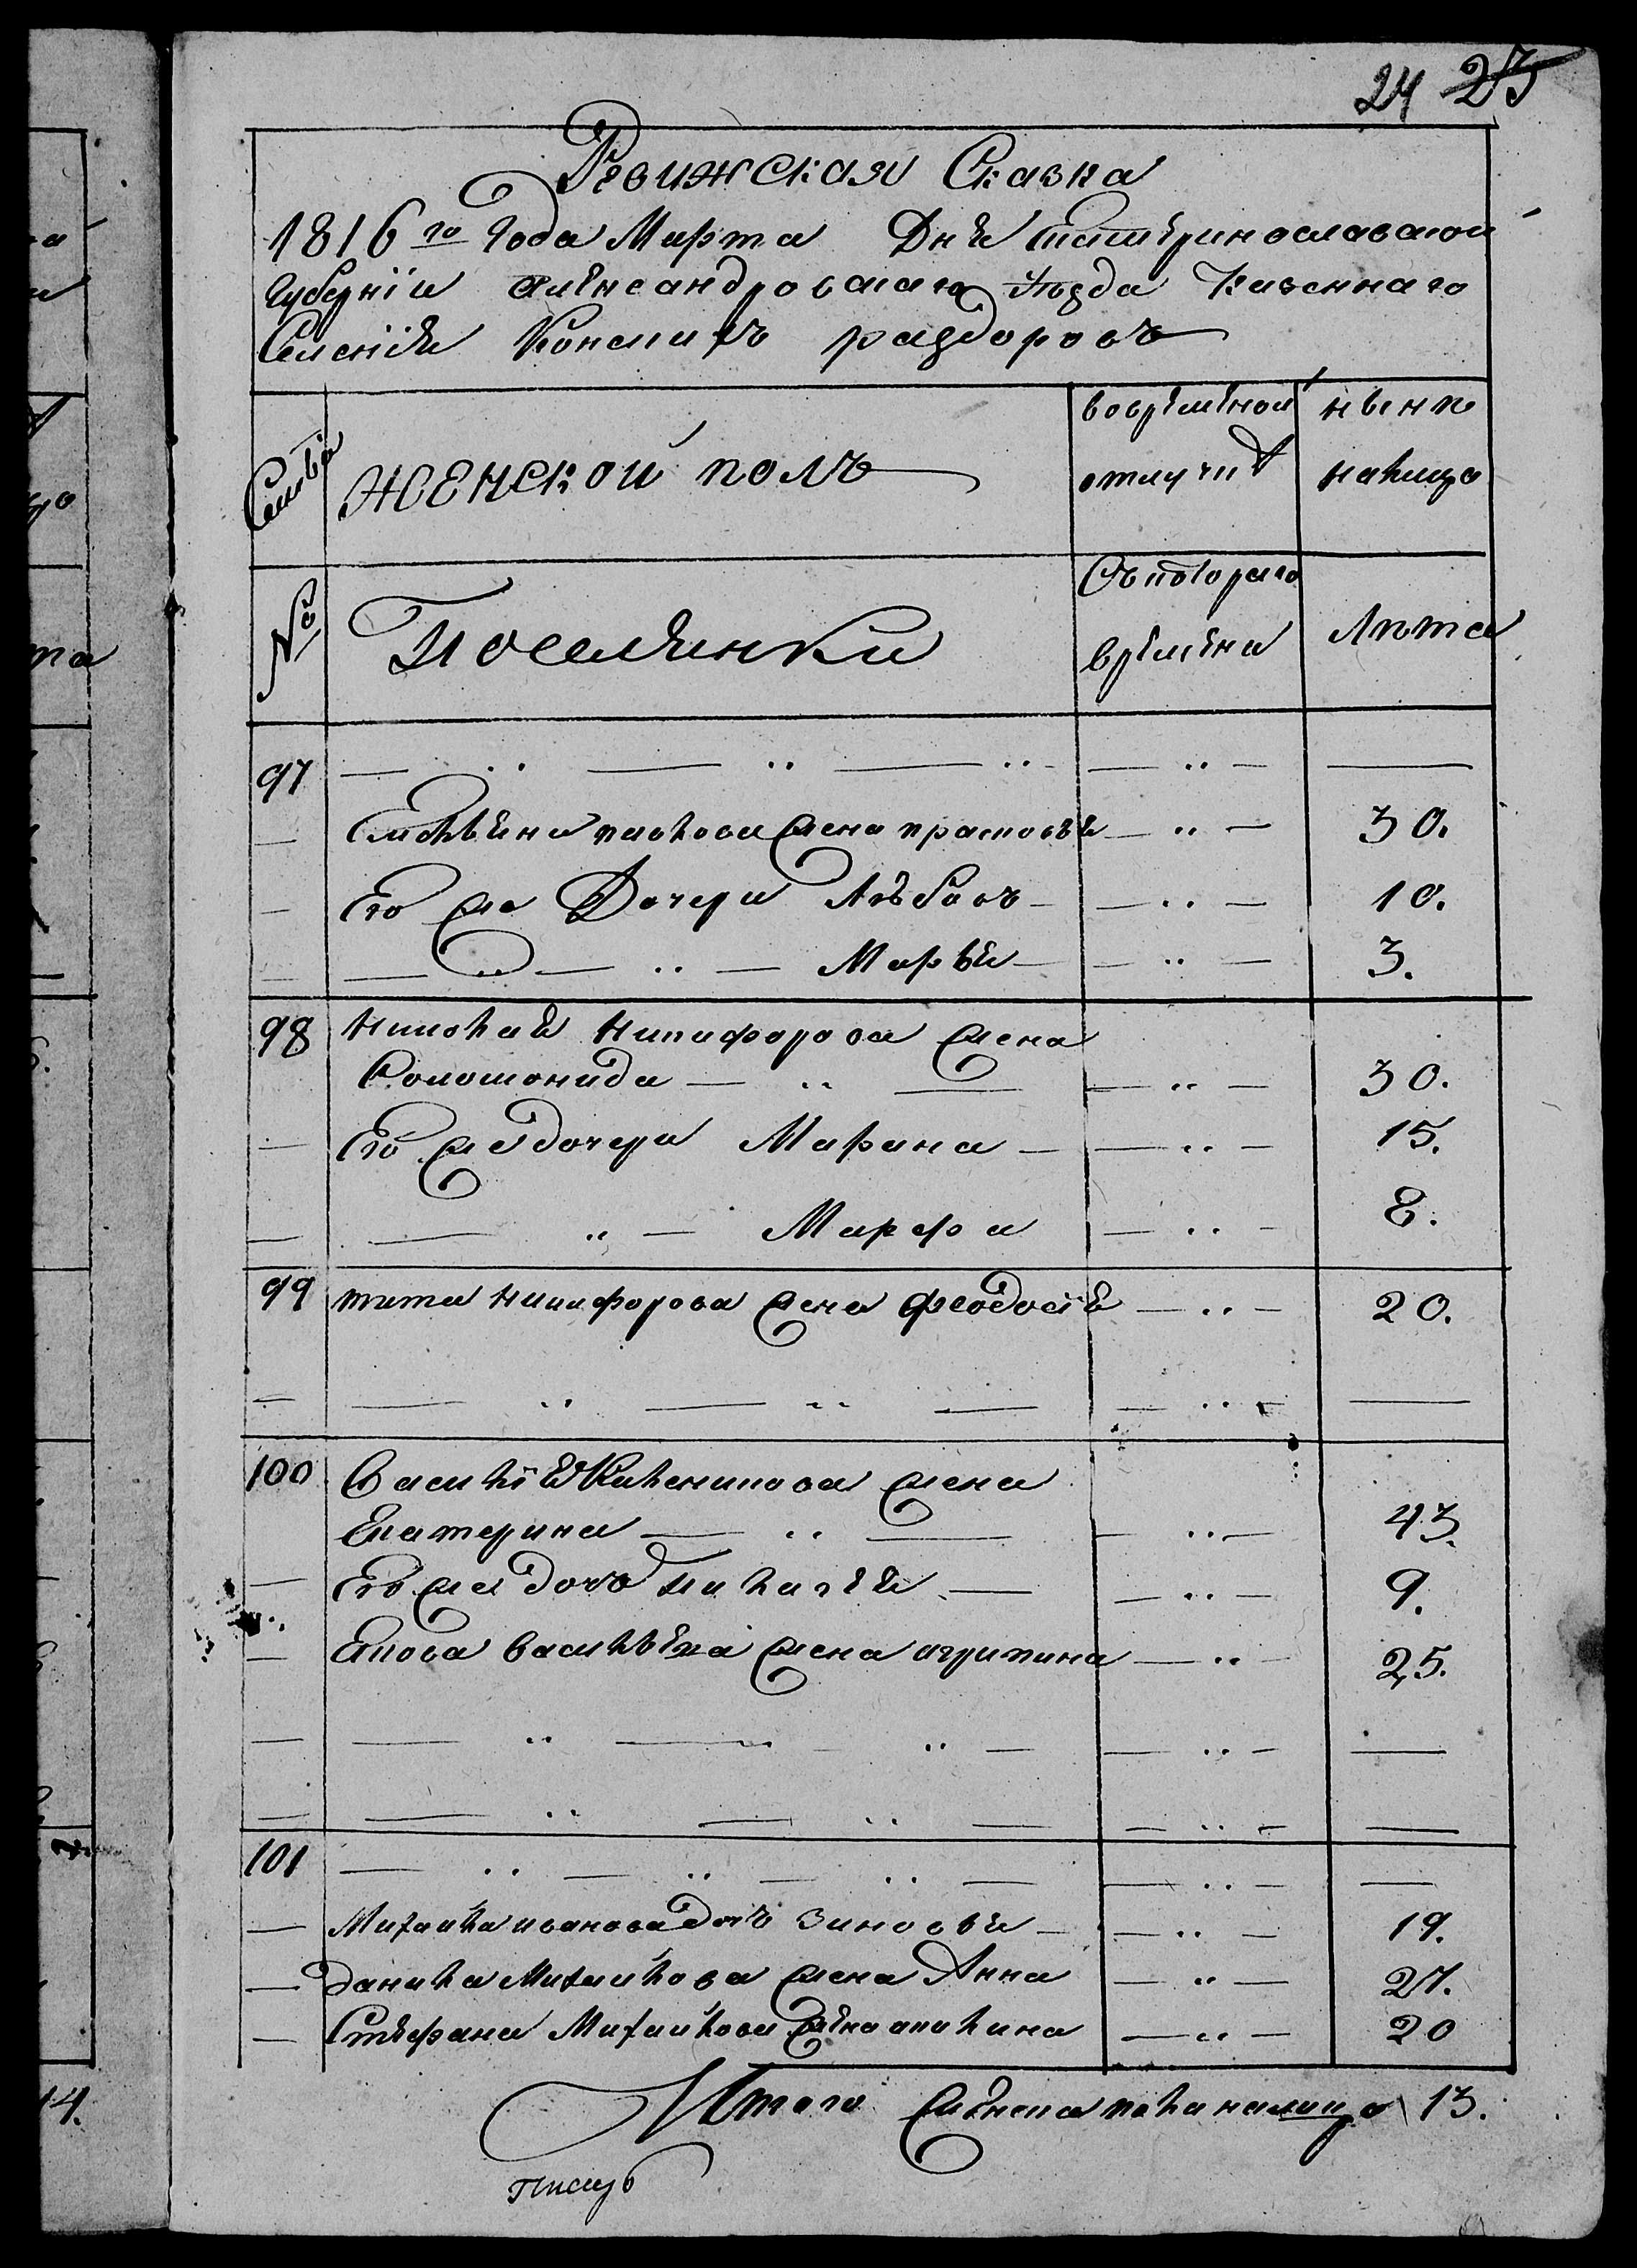 24 25
Ревижская Сказка
1816го Года Марта Дня Екатеринославской
Губернии Александровскаго Уезда Казеннаго
Селения Конских раздоров
Семьи
женской полъ
вовременной отлучке
ныне на лицо
№
Поселянки
Съ котораго времени
Лета
97 — „ — „ — „ — — „ — —
— Емельяна павлова жена прасковья — „ — 30.
— Его же Дочери Любовь — — „ — 10.
— — „ — „ — Марья — — „ — 3.
98 Николая Никифорова жена
Соломонида — „ — — „ — 30.
— Его же дочери Марина — — „ — 15.
— — „ — Марфа — „ — 8.
99 тита никифорова жена феодосия — „ — 20.
— — „ — „ — — „ — —
100 Василия жена
Екатерина — „ — — „ — 43.
— Его же дочь Пелагея — — „ — 9.
— васильева жена агрипина — „ — 25.
— — „ — „ — „ — — „ — —
— — „ — „ — — „ — —
101 — „ — „ — „ — — „ — —
— Михайла иванова дочь Зиновья — — „ — 19.
— Данила Михайлова жена Анна — „ — 27.
— Стефана Михайлова жена акилина — „ — 20
Итого женска пола налицо 13.
Писарь